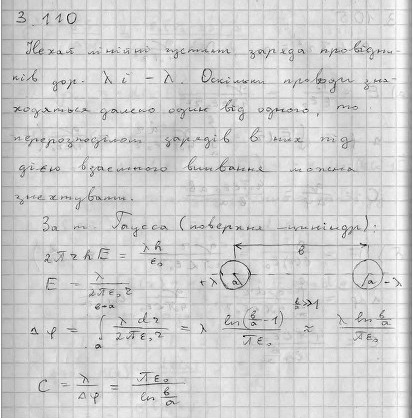 3.110
Нехай лінійні густини заряда провідни-
ків дор. λ і -λ. Оскільки проводи зна-
ходяться далеко один від одного, то
перерозподілом зарядів в них під
дією взаємного впливання можна
знехтувати.
За т. Гаусса (поверхня - циліндр):
2πrhE = λh/ε₀
в
E = λ/2πε₀r
+λ a a -λ
Δφ = ∫ₐᵇ⁻ᵃ λdr/2πε₀r = λ ln(b/a - 1)/πε₀ ≈ λ ln b/a / πε₀
b/a ≫ 1
C = λ/Δφ = πε₀/ln b/a